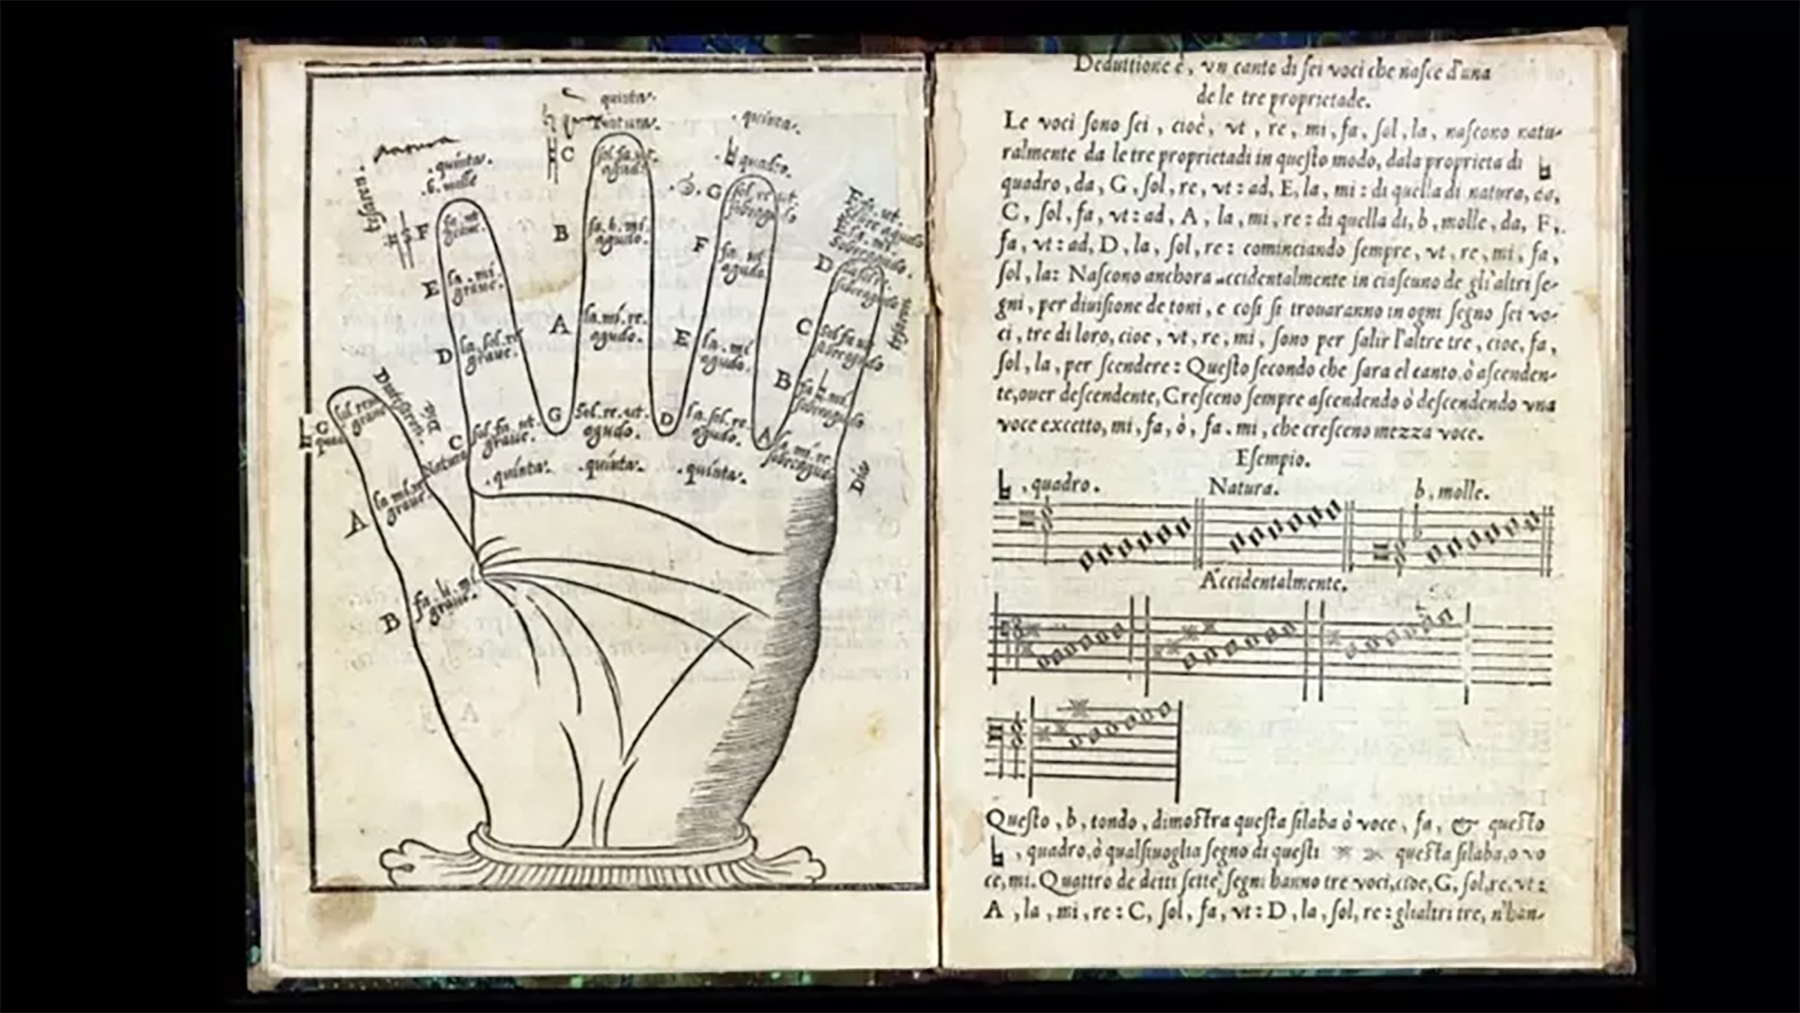 quinta.
Natura.
C
quinta.
quadro.
quinta.
b. molle
F
fa. ut
graue.
sol. fa. ut.
acuto.
G
sol. re. ut
D
E
la. mi
graue.
B
fa. ♮. mi.
agudo.
F
fa. ut
agudo.
C
sol fa ut
D
la. sol. re
graue.
A
la. mi. re.
agudo.
E
la. mi
agudo.
B
G
C
sol. fa. ut.
graue.
G
sol. re. ut.
agudo.
D
la. sol. re.
agudo.
A
la. mi. re
Natura
quinta.
quinta.
quinta.
A
la mi. re
graue.
B
fa. ♮. mi
graue.
Deduttione è, vn canto di ſei voci che naſce d'una
de le tre proprietade.
Le voci ſono ſei, cioè, vt, re, mi, fa, ſol, la, naſcono natu-
ralmente da le tre proprietadi in queſto modo, dala proprieta di ♮
quadro, da, G, ſol, re, vt: ad, E, la, mi: di quella di natura, da,
C, ſol, fa, vt: ad, A, la, mi, re: di quella di, b, molle, da, F,
fa, vt: ad, D, la, ſol, re: cominciando ſempre, vt, re, mi, fa,
ſol, la: Naſcono anchora accidentalmente in ciaſcuno de gli'altri ſe-
gni, per diuiſione de toni, e coſi ſi trouaranno in ogni ſegno ſei vo-
ci, tre di loro, cioe, vt, re, mi, ſono per ſalir l'altre tre, cioe, fa,
ſol, la, per ſcendere: Queſto ſecondo che ſara el canto. ò aſcenden-
te, ouer deſcendente, Creſceno ſempre aſcendendo ò deſcendendo vna
voce excetto, mi, fa, ò, fa. mi, che creſceno mezza voce.
Eſempio.
♮, quadro. Natura. b, molle.
Accidentalmente.
Queſto, b, tondo, dimoſtra queſta ſilaba ò voce, fa, & queſto
♮, quadro, ò qualſiuoglia ſegno di queſti queſta ſilaba, o vo
ce, mi. Quattro de detti ſette, ſegni hanno tre voci, cioe, G, ſol, re, vt:
A, la, mi, re: C, ſol, fa, vt: D, la, ſol, re: glialtri tre, n'han-